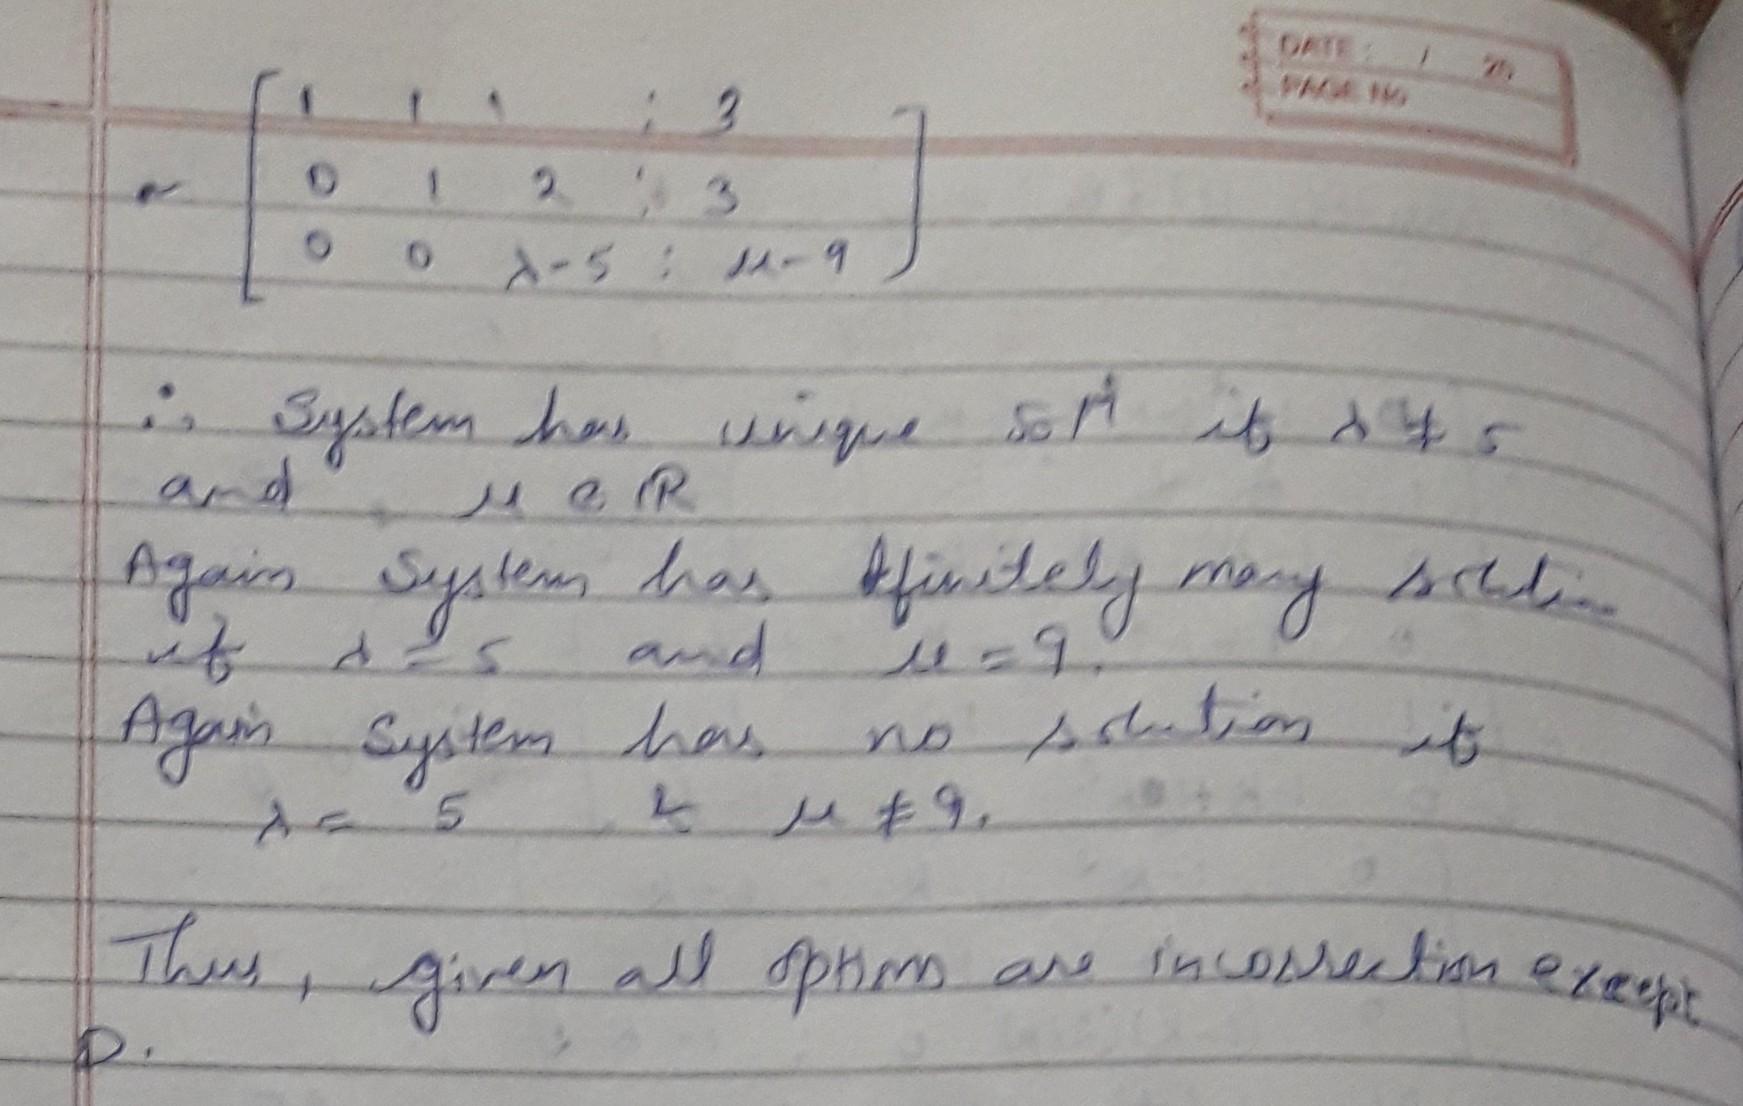 DATE: / 20
PAGE No
~ [ 1 1 1 : 3
0 1 2 : 3
0 0 λ-5 : μ-9 ]
∴ System has unique solⁿ if λ ≠ 5
and μ ∈ ℝ
Again System has Ifinitely many solution
if λ = 5 and μ = 9.
Again System has no solution if
λ = 5 & μ ≠ 9.
Thus, given all options are incorrection except
D.